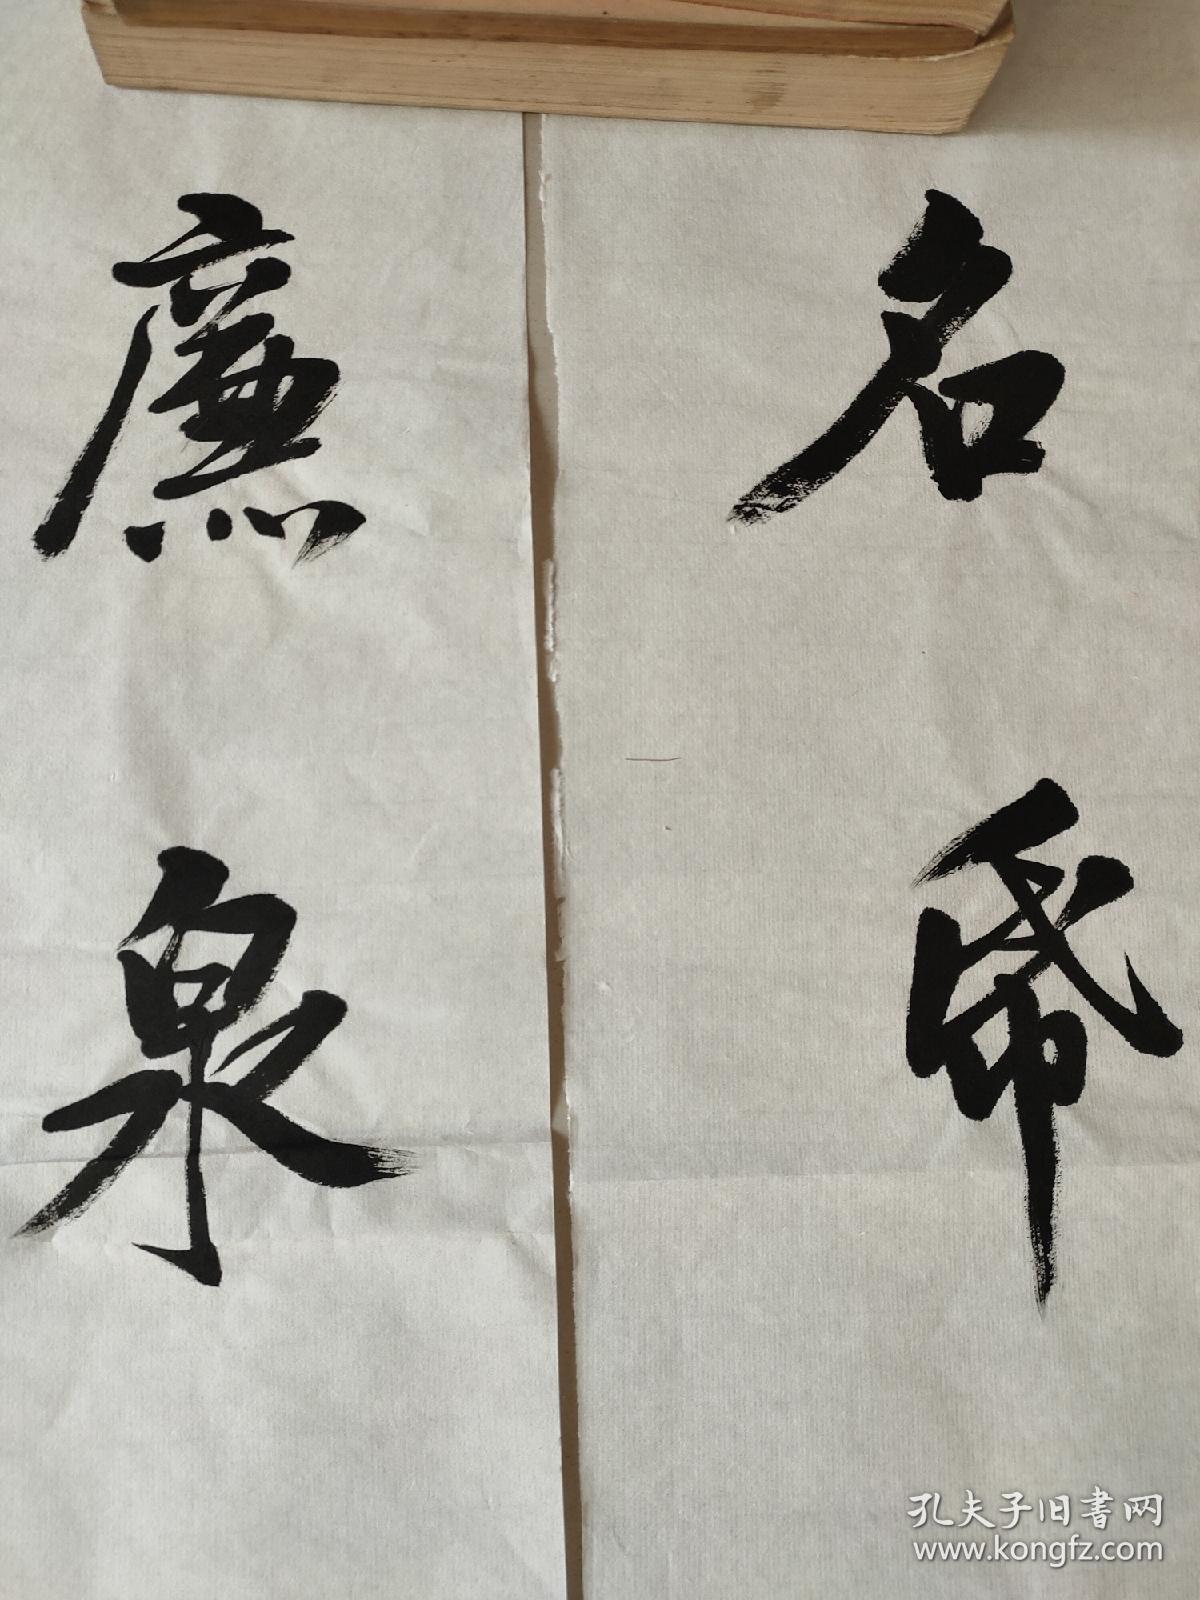 名
廉
泉
孔夫子旧书网
www.kongfz.com